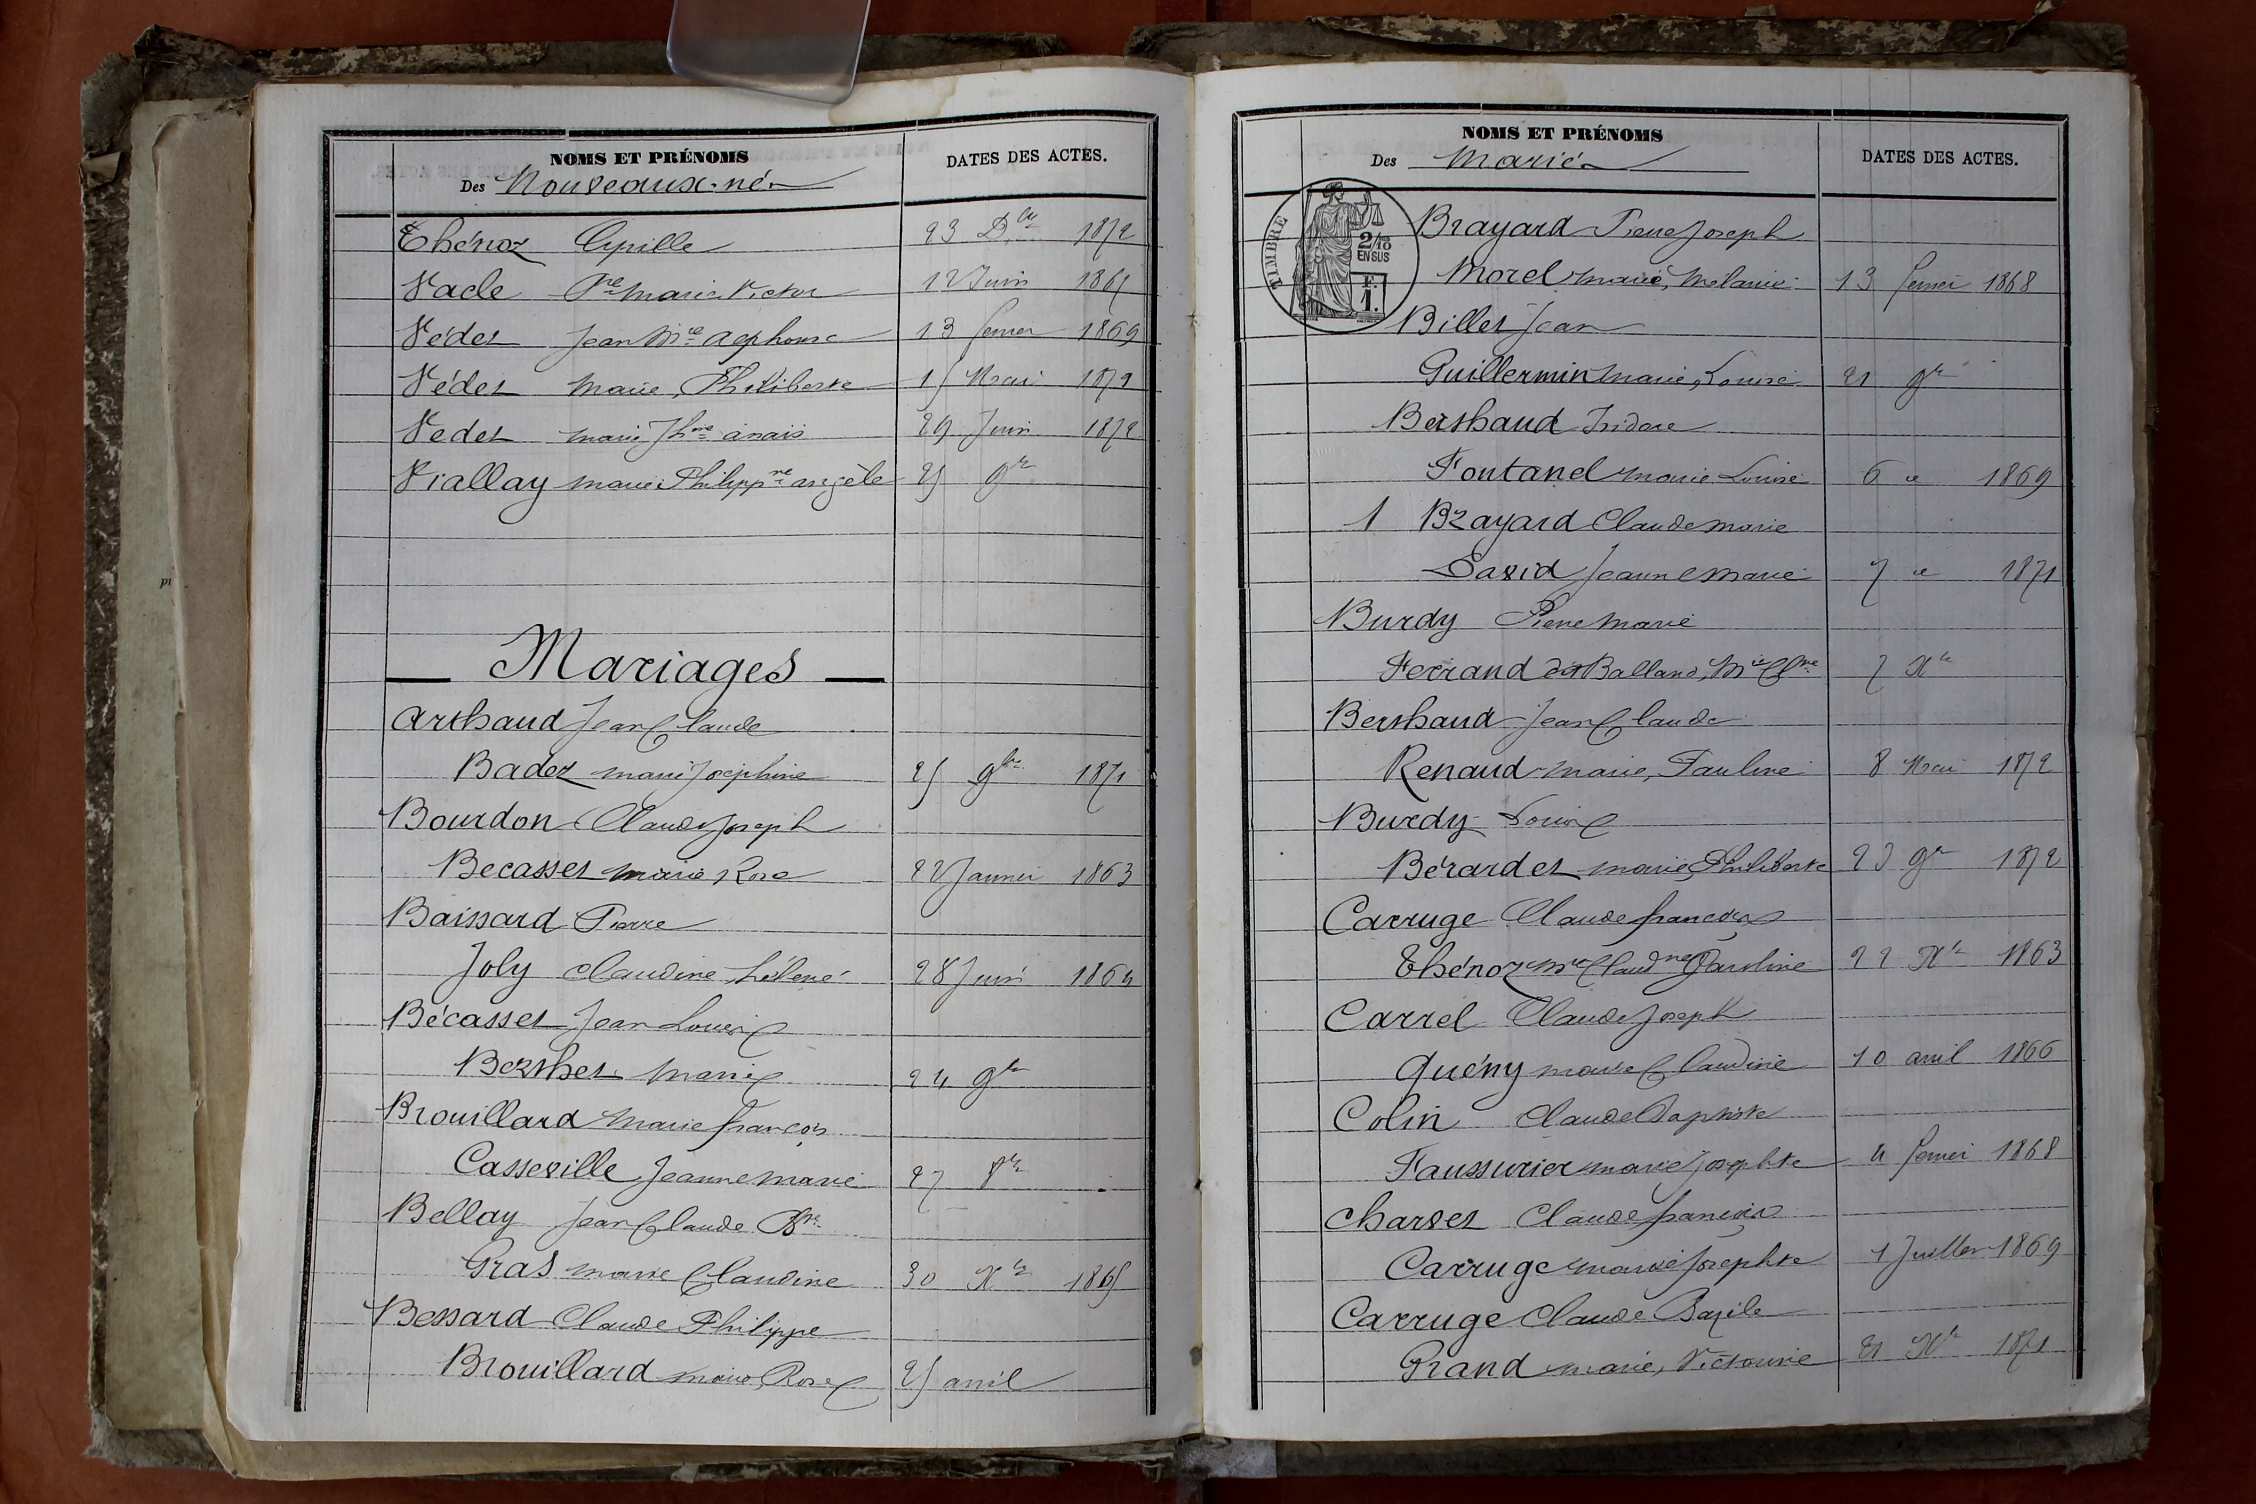 NOMS ET PRÉNOMS
Des Nouveaux-nés
DATES DES ACTES.
Thénoz Cyrille 23 Dbre 1872
Vacle Pre Marie Victor 12 Juin 1865
Védet Jean Mie Alphonse 13 février 1869
Védet Marie Philiberte 15 Mai 1872
Vedet Marie Jhne anaïs 29 Juin 1872
Viallay Marie Philippne angèle 25 9bre
Mariages
Arthaud Jean Claude
Badez Marie Joséphine 25 9bre 1871
Bourdon Claude Joseph
Becasset Marie Rose 22 Janvier 1863
Baissard Pierre
Joly Claudine Hélène 28 Juin 1864
Bécasset Jean Louis
Berthet Marie 24 9bre
Brouillard Marie françois
Casseville Jeanne Marie 27 Xbre
Bellay Jean Claude
Gras Marie Claudine 30 Xbre 1865
Bessard Claude Philippe
Brouillard Marie Rose 25 avril
NOMS ET PRÉNOMS
Des Mariés
DATES DES ACTES.
TIMBRE
2/10
EN SUS
F.
1.
Brayard Pierre Joseph
Morel Marie, Mélanie 13 février 1868
Billet Jean
Guillermin Marie, Louise 21 9bre
Berthaud Isidore
Fontanel Marie Louise 6 1869
1 Brayard Claude Marie
David Jeanne Marie 7 1871
Burdy Pierre Marie
Ferrand dit Balland, Mie Clne 7 Xbre
Berthaud Jean Claude
Renaud Marie, Pauline 8 Mai 1872
Burdy Louis
Bérardet Marie Philiberte 23 9bre 1872
Carruge Claude françois
Thénoz Mie Claudne Caroline 22 Xbre 1863
Carrel Claude Joseph
Quény Marie Claudine 10 avril 1866
Colin Claude Baptiste
Faussurier Marie Josephte 4 février 1868
Charvet Claude françois
Carruge Marie Josephte 1 Juillet 1869
Carruge Claude Bazile
Grand Marie, Victorine 21 Xbre 1871